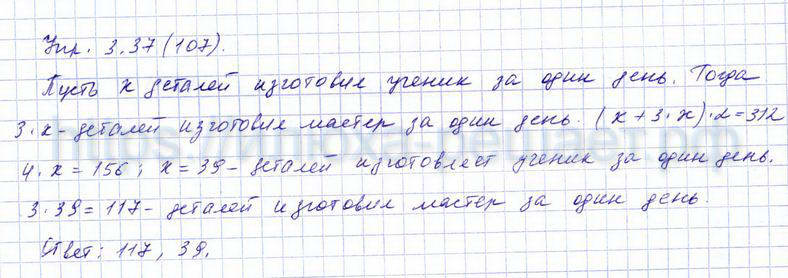 Упр. 3.37(107).
Пусть х деталей изготовил ученик за один день. Тогда
3·х - деталей изготовил мастер за один день. (х + 3·х)·2=312
4·х = 156; х = 39 - деталей изготовляет ученик за один день.
3·39 = 117 - деталей изготовил мастер за один день.
Ответ: 117, 39.